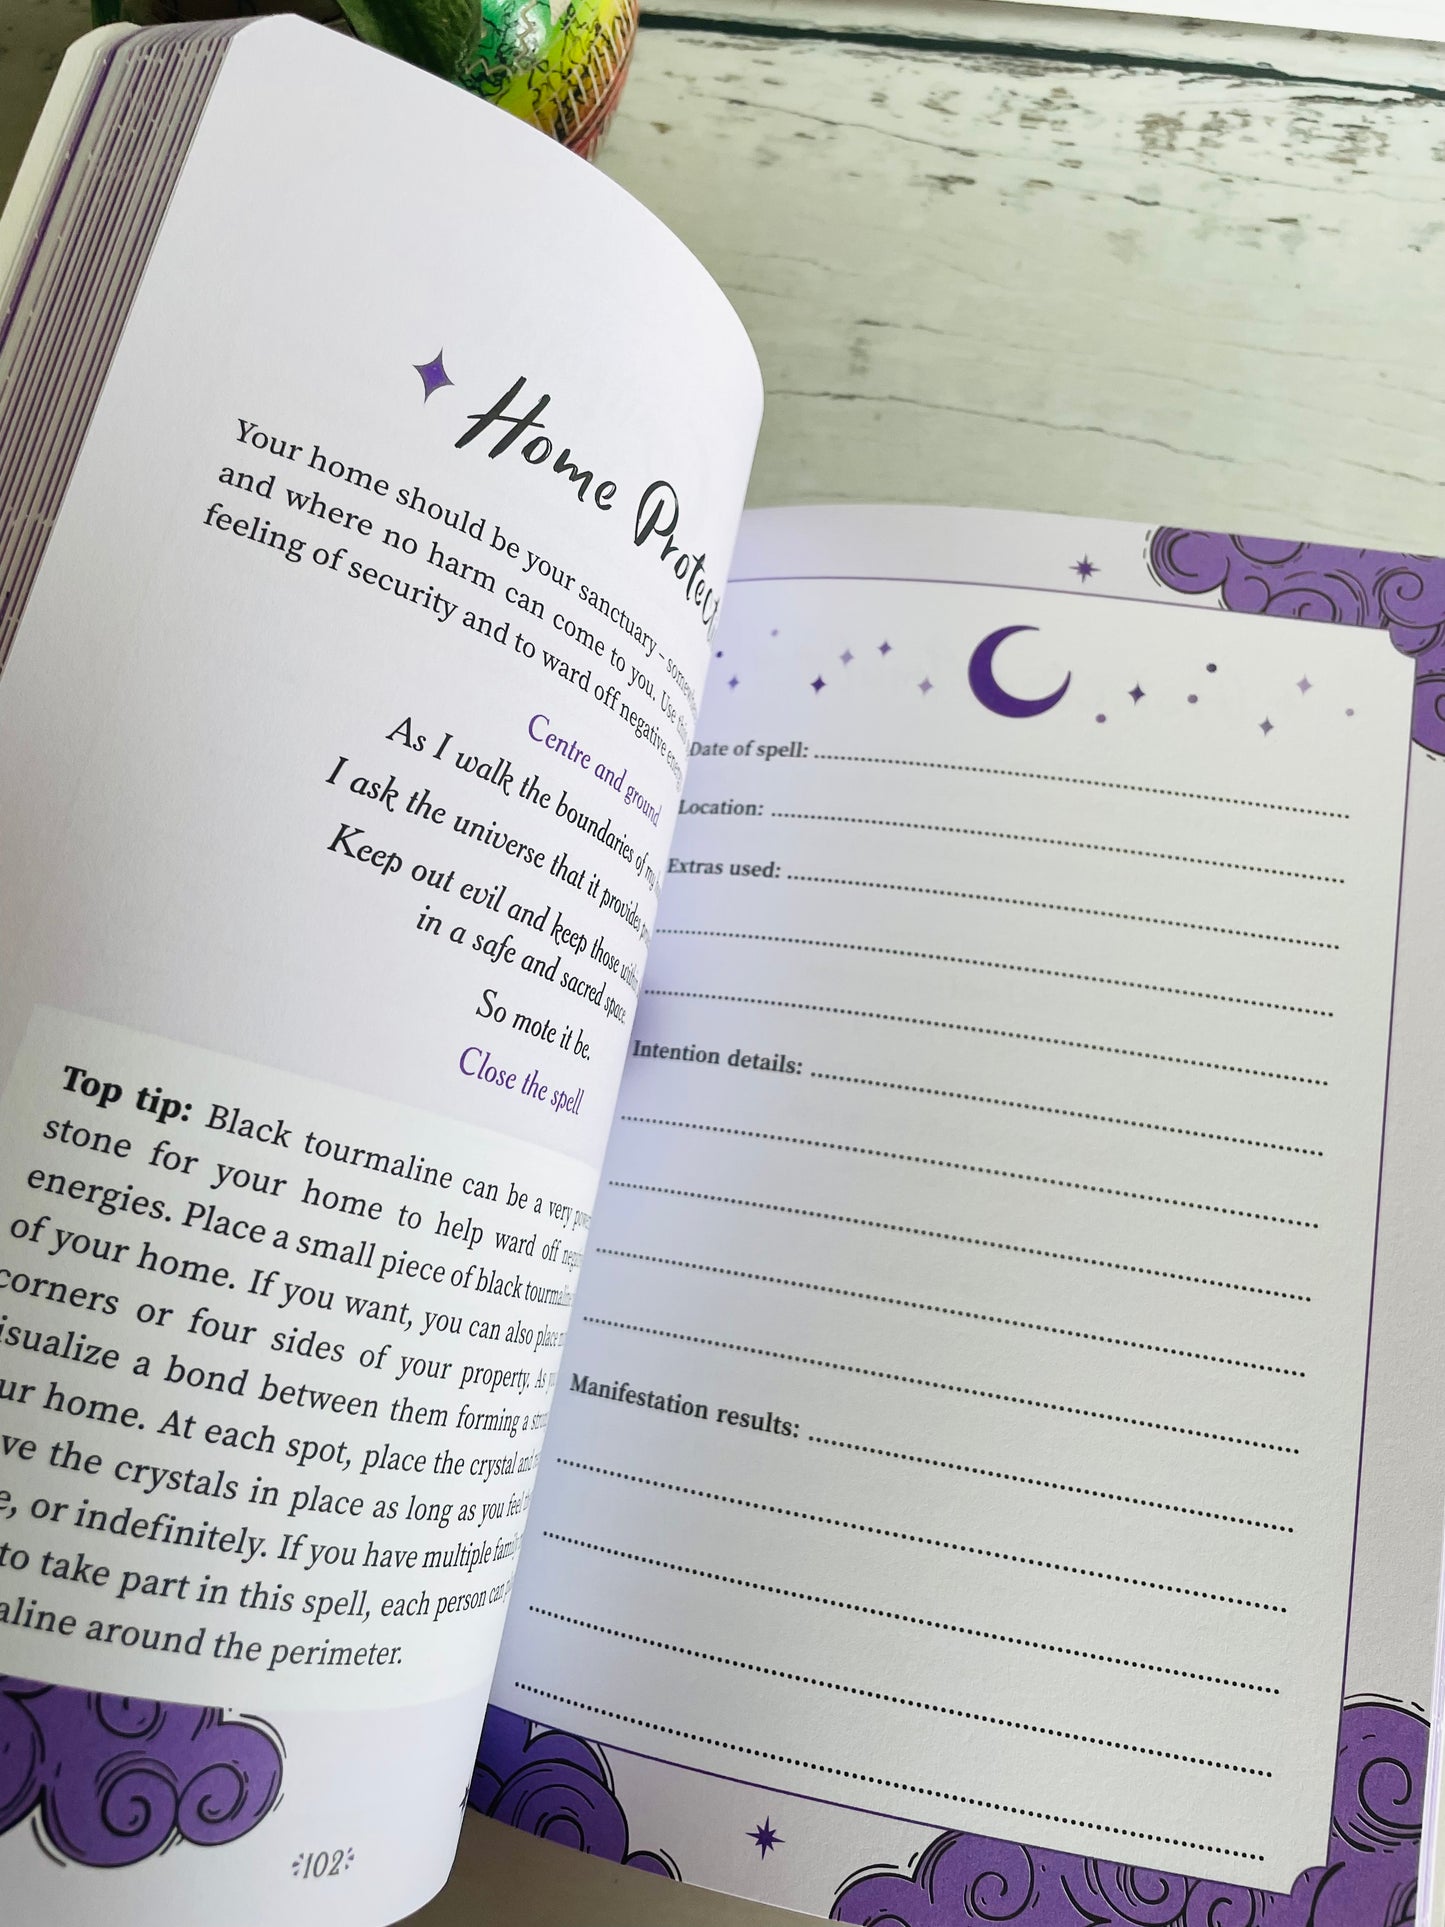 Home
Your home should be your sanctuary –
and where no harm can come to you. Use
feeling of security and to ward off negative
Centre and ground
As I walk the boundaries of my
I ask the universe that it provides
Keep out evil and keep those within
in a safe and sacred space.
So mote it be.
Close the spell
Top tip: Black tourmaline can be a very
stone for your home to help ward off
energies. Place a small piece of black
of your home. If you want, you can also place
corners or four sides of your property. As
a bond between them forming a
home. At each spot, place the crystal and
the crystals in place as long as you feel
or indefinitely. If you have multiple
to take part in this spell, each person can
around the perimeter.
102
Date of spell:
Location:
Extras used:
Intention details:
Manifestation results: